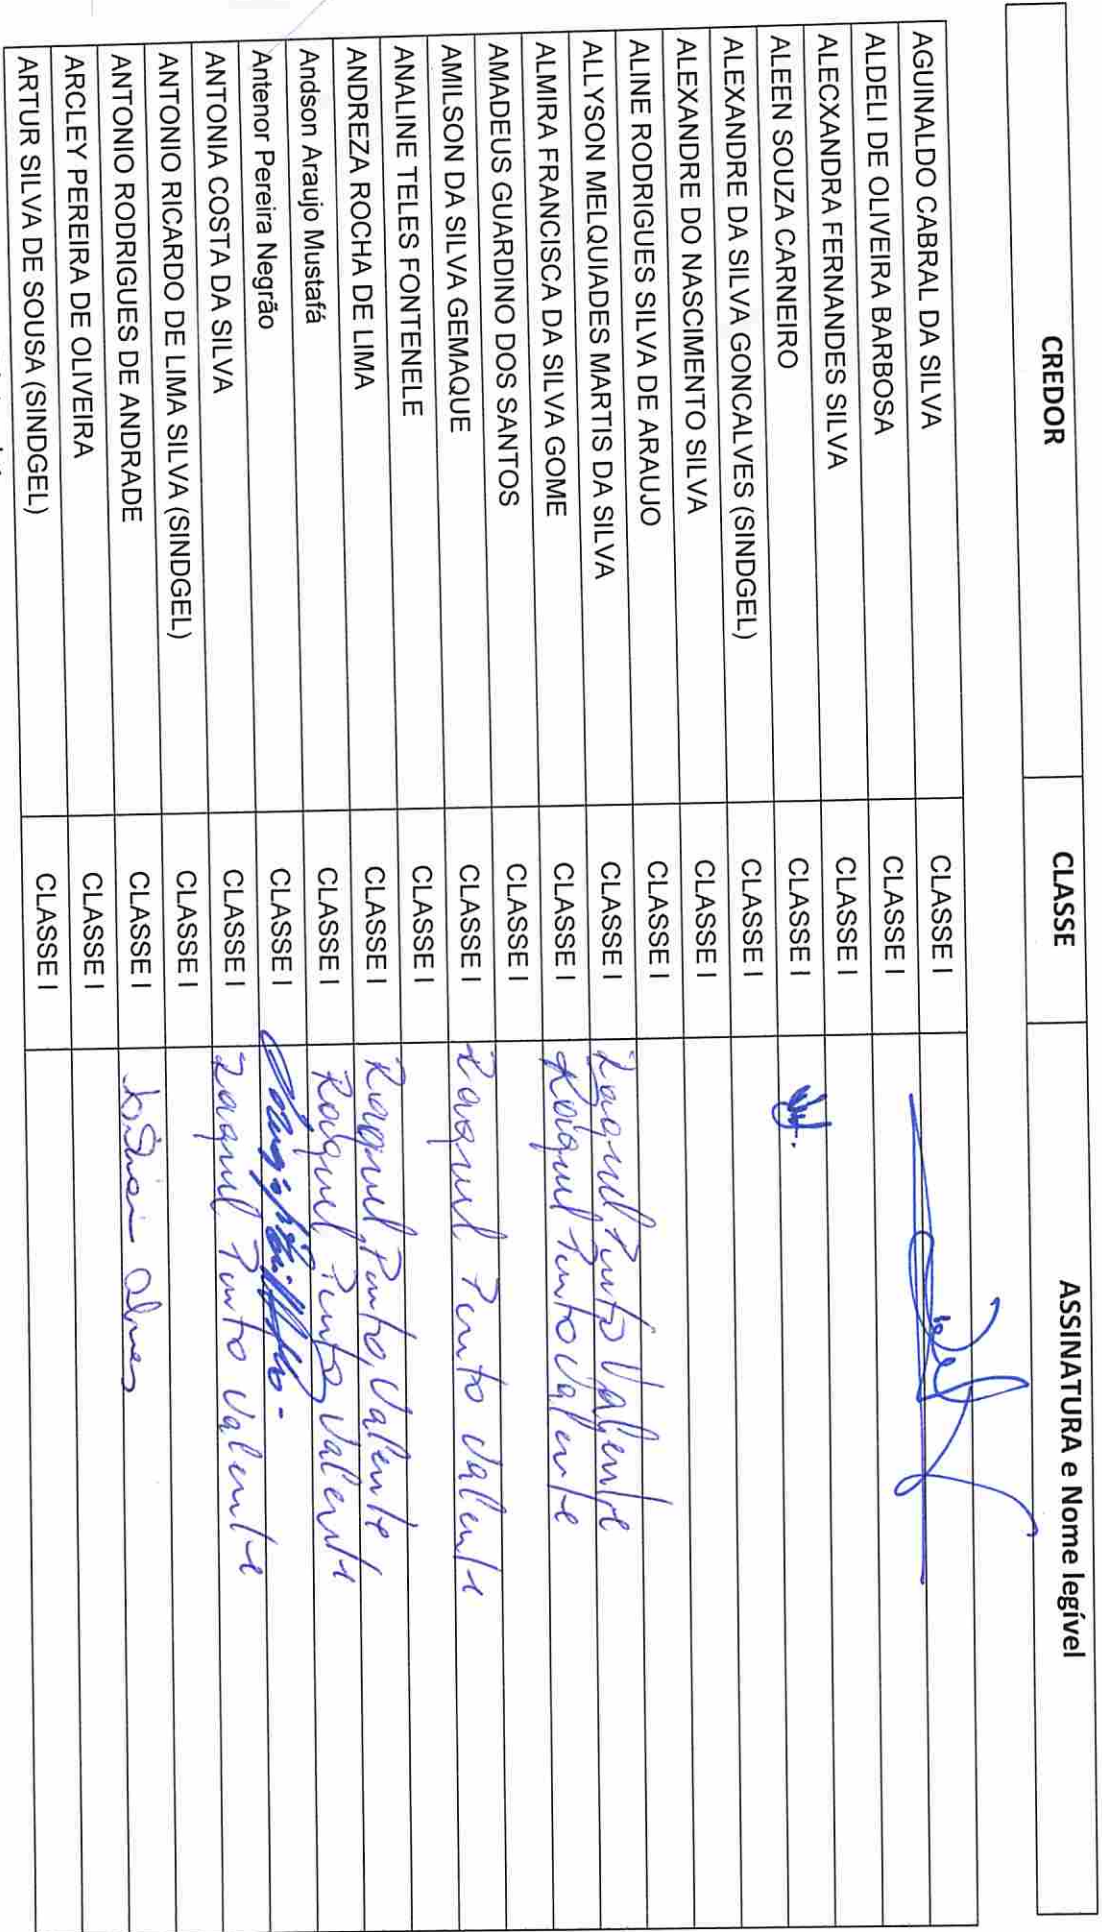 CREDOR CLASSE ASSINATURA e Nome legível
AGUINALDO CABRAL DA SILVA CLASSE I
ALDELI DE OLIVEIRA BARBOSA CLASSE I
ALECXANDRA FERNANDES SILVA CLASSE I
ALEEN SOUZA CARNEIRO CLASSE I
ALEXANDRE DA SILVA GONCALVES (SINDGEL) CLASSE I
ALEXANDRE DO NASCIMENTO SILVA CLASSE I
ALINE RODRIGUES SILVA DE ARAUJO CLASSE I
ALLYSON MELQUIADES MARTIS DA SILVA CLASSE I Raquel Pinto Valente
ALMIRA FRANCISCA DA SILVA GOME CLASSE I Raquel Pinto Valente
AMADEUS GUARDINO DOS SANTOS CLASSE I
AMILSON DA SILVA GEMAQUE CLASSE I Raquel Pinto Valente
ANALINE TELES FONTENELE CLASSE I
ANDREZA ROCHA DE LIMA CLASSE I Raquel Pinto Valente
Andson Araujo Mustafá CLASSE I Raquel Pinto Valente
Antenor Pereira Negrão CLASSE I
ANTONIA COSTA DA SILVA CLASSE I Raquel Pinto Valente
ANTONIO RICARDO DE LIMA SILVA (SINDGEL) CLASSE I
ANTONIO RODRIGUES DE ANDRADE CLASSE I
ARCLEY PEREIRA DE OLIVEIRA CLASSE I
ARTUR SILVA DE SOUSA (SINDGEL) CLASSE I